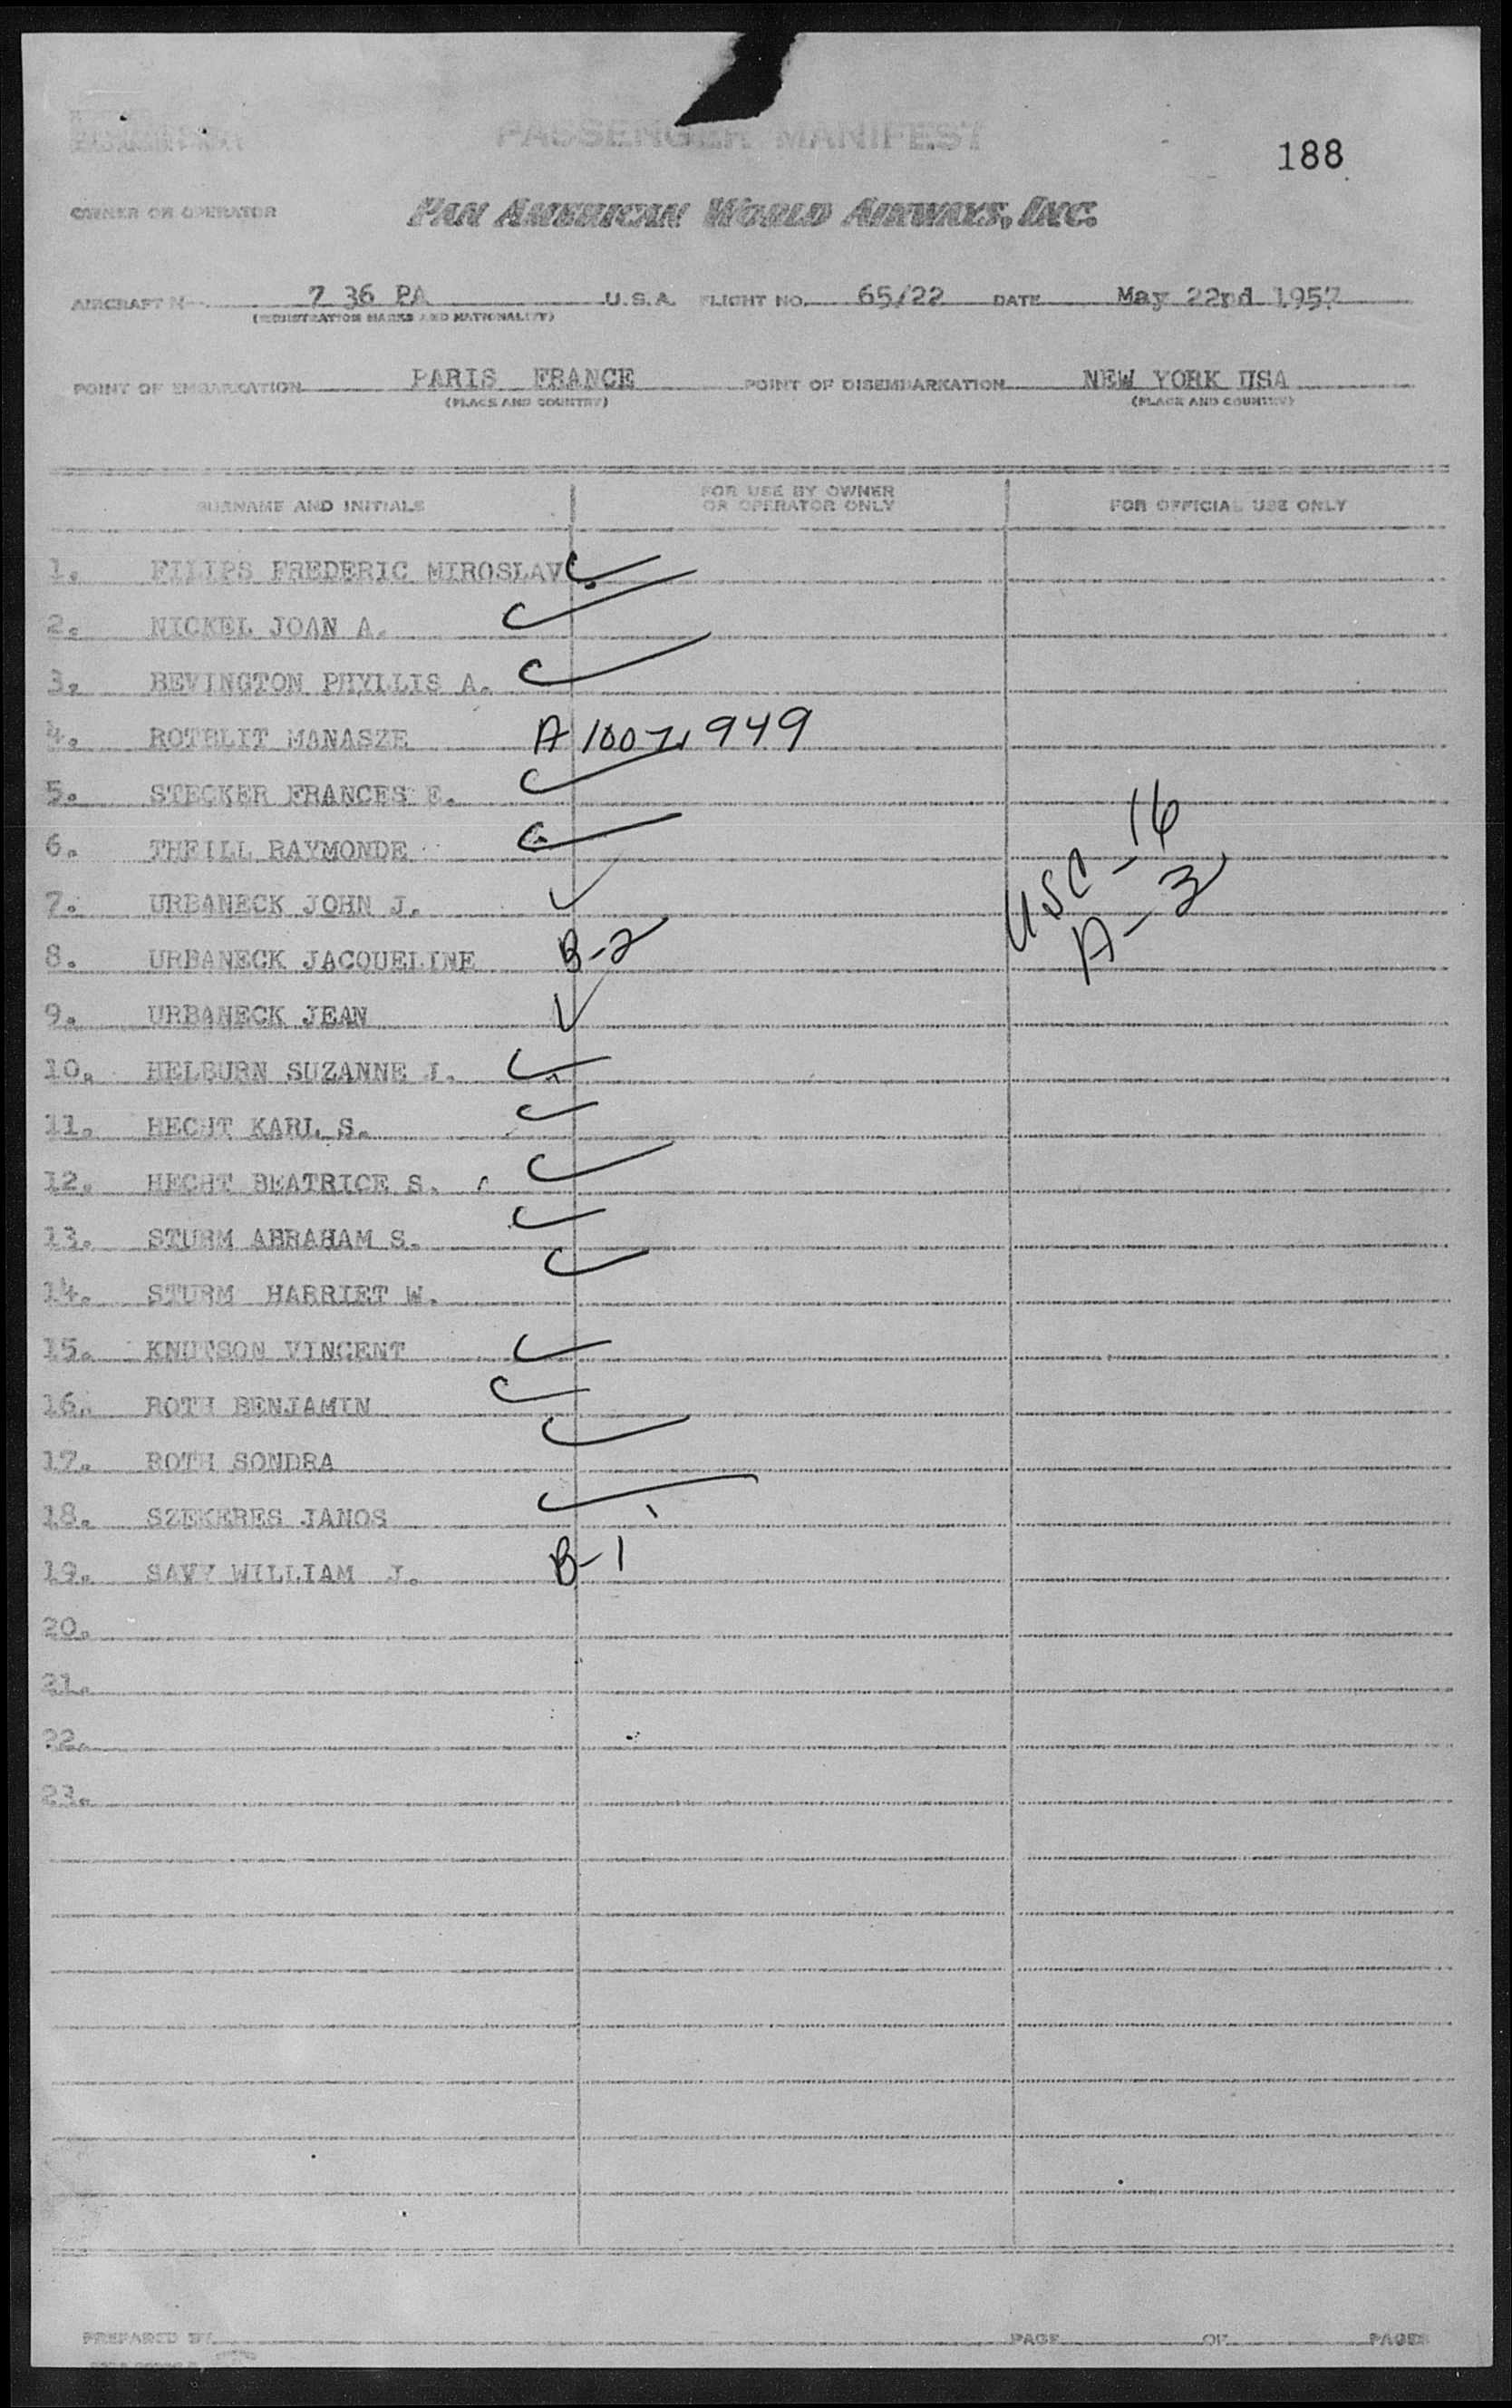 PASSENGER MANIFEST
188
OWNER OR OPERATOR PAN AMERICAN WORLD AIRWAYS, INC.
AIRCRAFT N 7 36 PA U.S.A. FLIGHT NO. 65/22 DATE May 22nd 1957
(REGISTRATION MARKS AND NATIONALITY)
POINT OF EMBARKATION PARIS FRANCE POINT OF DISEMBARKATION NEW YORK USA
(PLACE AND COUNTRY) (PLACE AND COUNTRY)
SURNAME AND INITIALS FOR USE BY OWNER OR OPERATOR ONLY FOR OFFICIAL USE ONLY
1. FILIPS FREDERIC MIROSLAV
2. NICKEL JOAN A.
3. BEVINGTON PHYLLIS A.
4. ROTBLIT MANASZE A 1007 949
5. STECKER FRANCES E.
6. THEILL RAYMONDE
7. URBANECK JOHN J.
USC-16
A-3
8. URBANECK JACQUELINE B-2
9. URBANECK JEAN
10. HELBURN SUZANNE J.
11. HECHT KARL S.
12. HECHT BEATRICE S.
13. STURM ABRAHAM S.
14. STURM HARRIET W.
15. KNUTSON VINCENT
16. ROTH BENJAMIN
17. ROTH SONDRA
18. SZEKERES JANOS
19. SAVY WILLIAM J. B-1
20.
21.
22.
23.
PREPARED BY PAGE OF PAGES